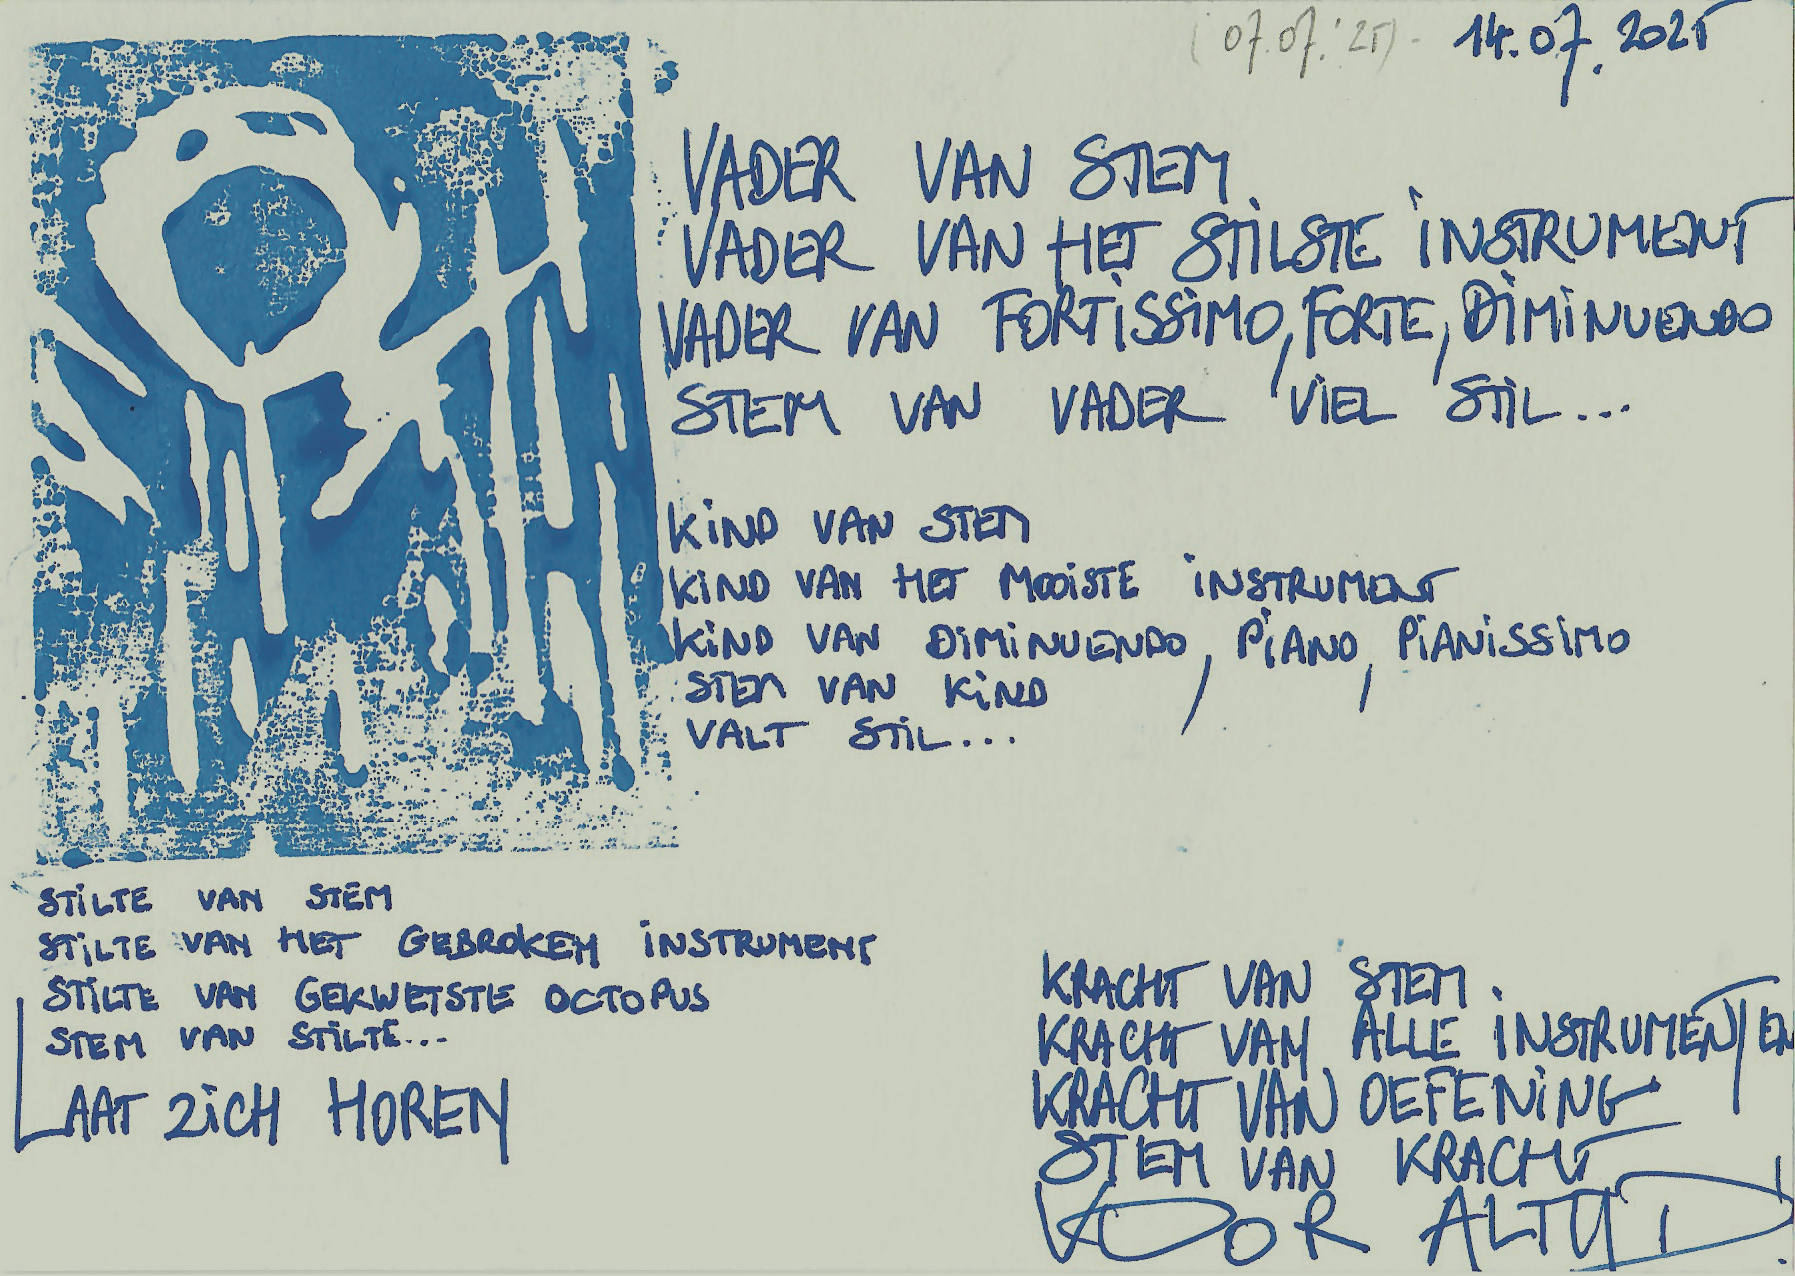 (07.07.'25) - 14.07.2025
VADER VAN STEM
VADER VAN HET STILSTE INSTRUMENT
VADER VAN FORTISSIMO, FORTE, DIMINUENDO
STEM VAN VADER VIEL STIL...
KIND VAN STEM
KIND VAN HET MOOISTE INSTRUMENT
KIND VAN DIMINUENDO, PIANO, PIANISSIMO
STEM VAN KIND
VALT STIL...
STILTE VAN STEM
STILTE VAN HET GEBROKEN INSTRUMENT
STILTE VAN GEKWETSTE OCTOPUS
STEM VAN STILTE...
LAAT ZICH HOREN
KRACHT VAN STEM
KRACHT VAN ALLE INSTRUMENTEN
KRACHT VAN OEFENING
STEM VAN KRACHT
VOOR ALTIJD!